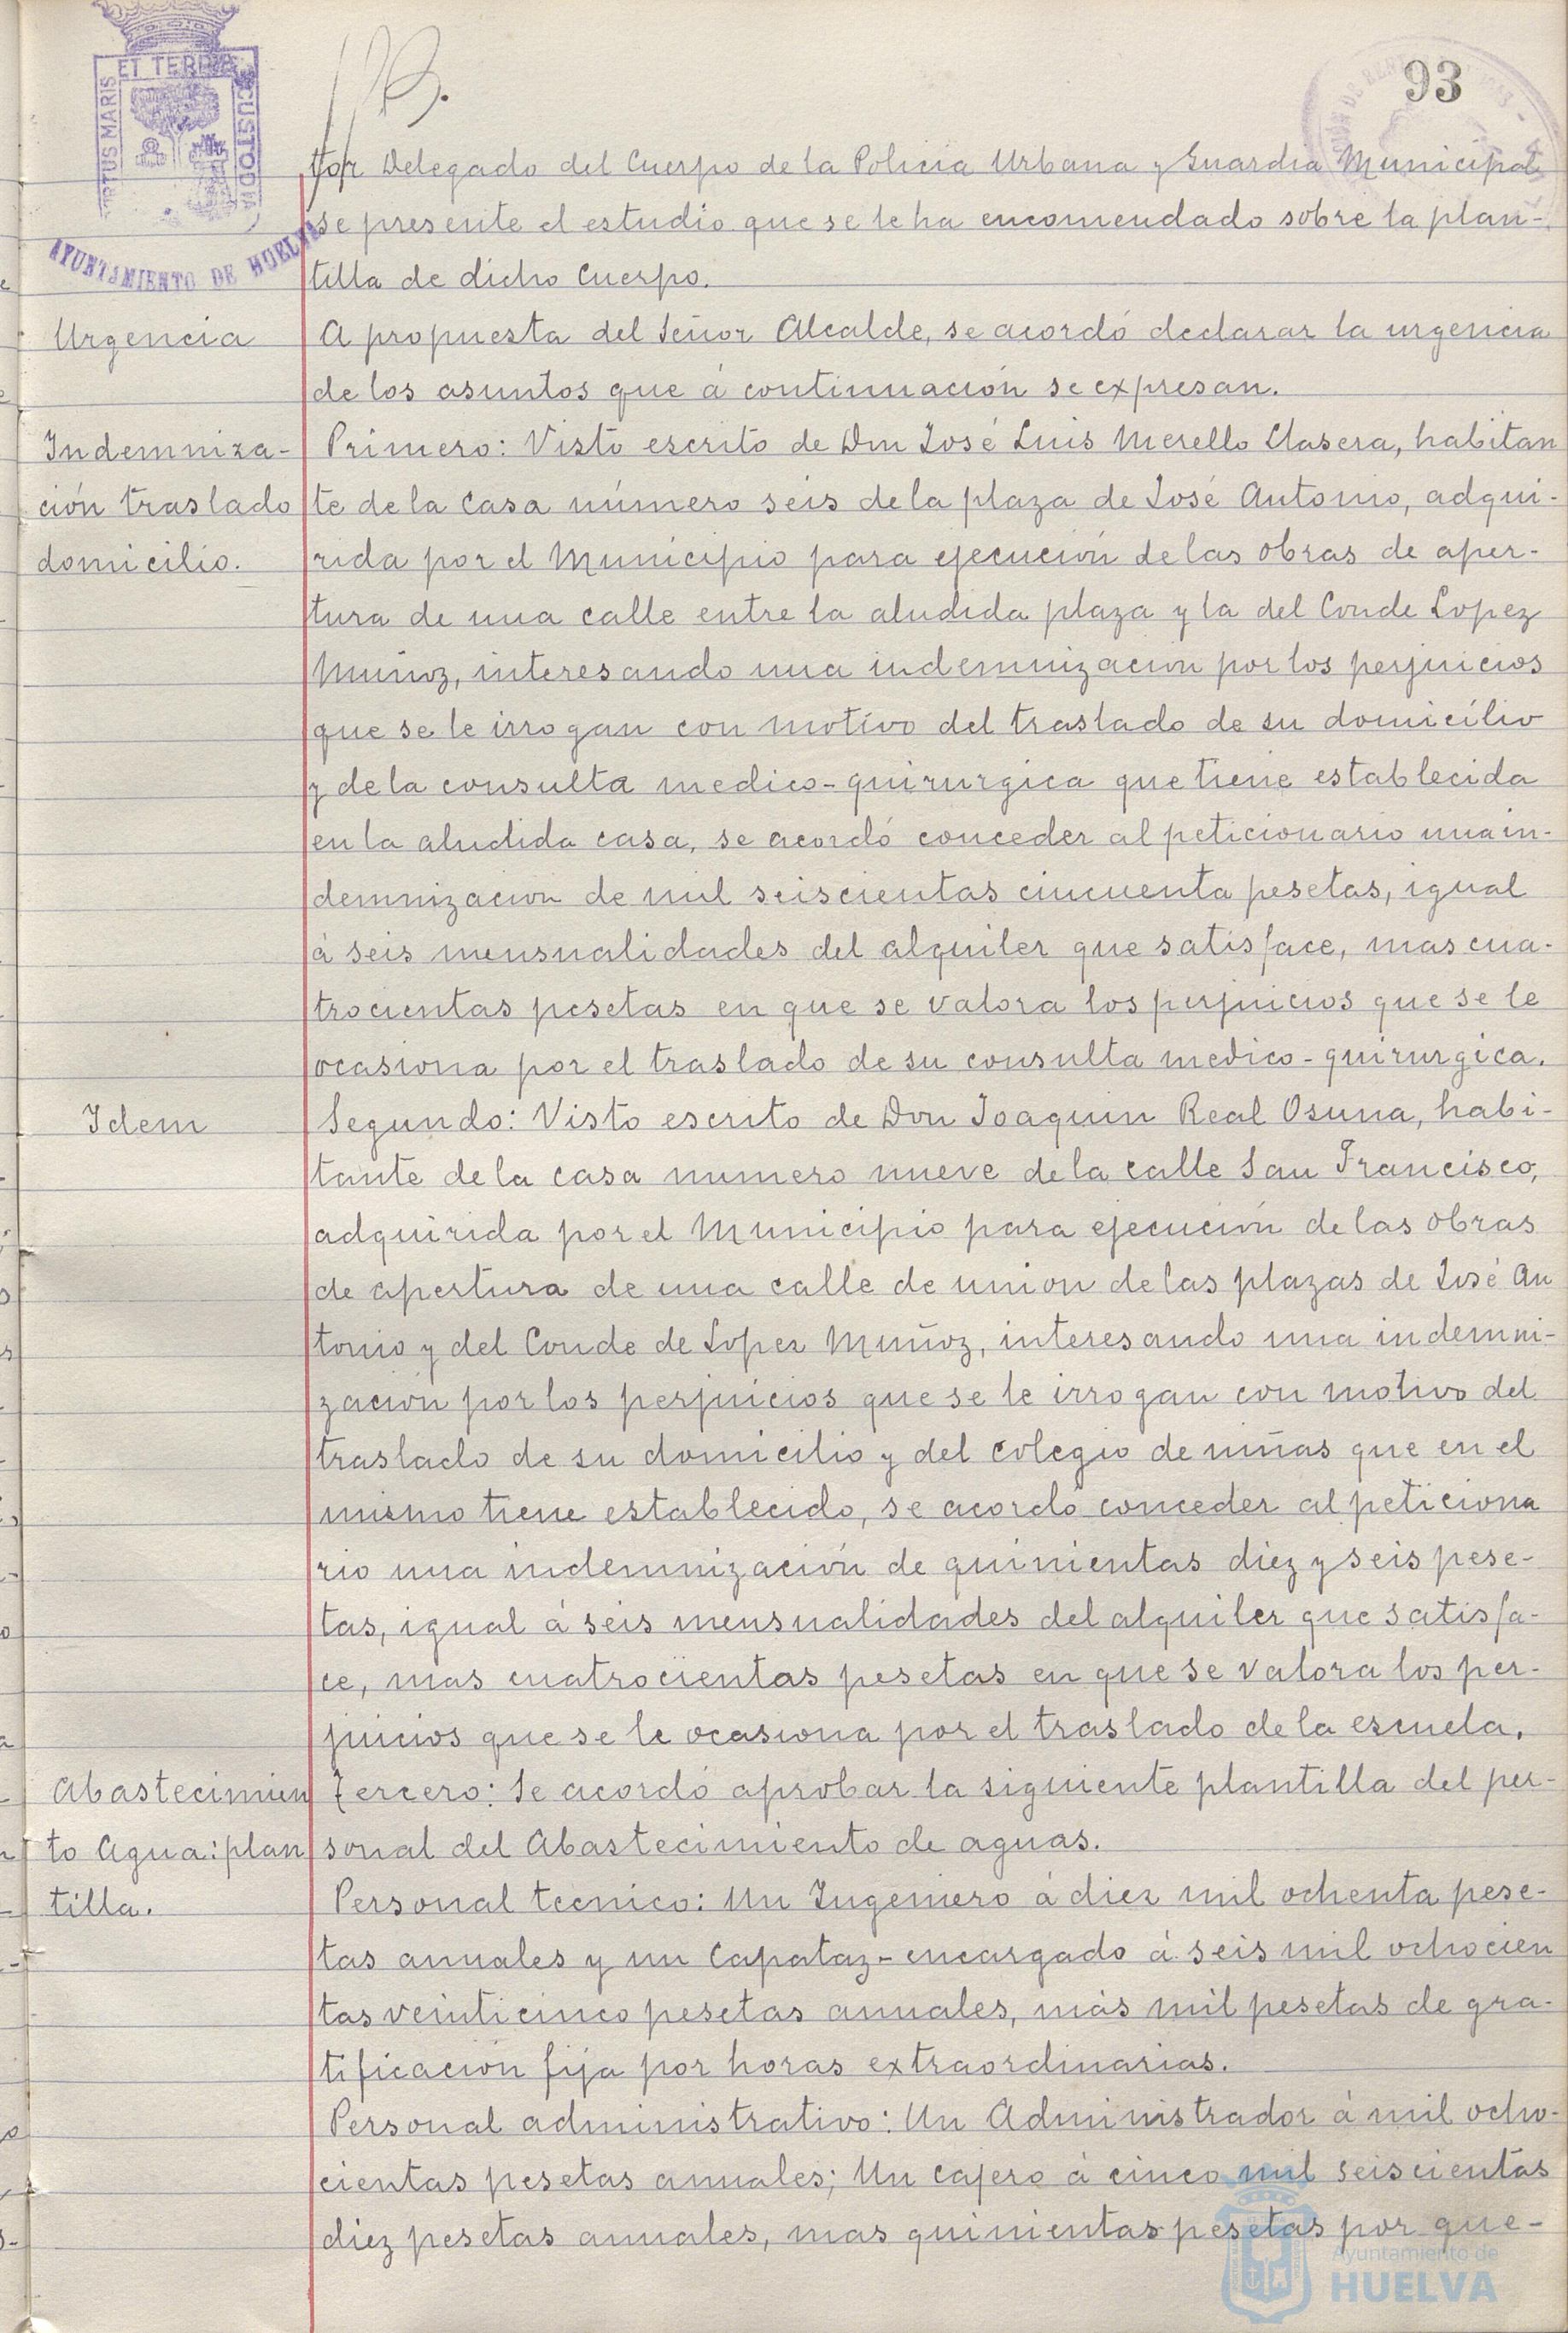 93
PORTUS MARIS
ET TERRAE
CUSTODIA
AYUNTAMIENTO DE HUELVA
tor Delegado del Cuerpo de la Policia Urbana y Guardia Municipal
se presente el estudio que se le ha encomendado sobre la plan-
tilla de dicho Cuerpo.
Urgencia
A propuesta del Señor Alcalde, se acordó declarar la urgencia
de los asuntos que á continuación se expresan.
Indemniza-
ción traslado
domicilio.
Primero: Visto escrito de Don José Luis Merello Llasera, habitan
te de la casa número seis de la plaza de José Antonio, adqui-
rida por el Municipio para ejecución de las obras de aper-
tura de una calle entre la aludida plaza y la del Conde Lopez
Muñoz, interesando una indemnizacion por los perjuicios
que se le irrogan con motivo del traslado de su domicilio
y de la consulta medico-quirurgica que tiene establecida
en la aludida casa, se acordó conceder al peticionario una in-
demnizacion de mil seiscientas cincuenta pesetas, igual
á seis mensualidades del alquiler que satisface, mas cua-
trocientas pesetas en que se valora los perjuicios que se le
ocasiona por el traslado de su consulta medico-quirurgica.
Idem
Segundo: Visto escrito de Don Joaquin Real Osuna, habi-
tante de la casa numero nueve de la calle San Francisco,
adquirida por el Municipio para ejecución de las obras
de apertura de una calle de union de las plazas de José An
tonio y del Conde de Lopez Muñoz, interesando una indemni-
zación por los perjuicios que se le irrogan con motivo del
traslado de su domicilio y del colegio de niñas que en el
mismo tiene establecido, se acordó conceder al peticiona
rio una indemnización de quinientas diez y seis pese-
tas, igual á seis mensualidades del alquiler que satisfa-
ce, mas cuatrocientas pesetas en que se valora los per-
juicios que se le ocasiona por el traslado de la escuela.
Abastecimien
to Agua: plan
tilla.
Tercero: Se acordó aprobar la siguiente plantilla del per-
sonal del Abastecimiento de aguas.
Personal tecnico: Un Ingeniero á diez mil ochenta pese-
tas anuales y un Capataz-encargado á seis mil ochocien
tas veinticinco pesetas anuales, más mil pesetas de gra-
tificación fija por horas extraordinarias.
Personal administrativo: Un Administrador á mil ocho-
cientas pesetas anuales; Un cajero á cinco mil seiscientas
diez pesetas anuales, mas quinientas pesetas por que-
Ayuntamiento de
HUELVA